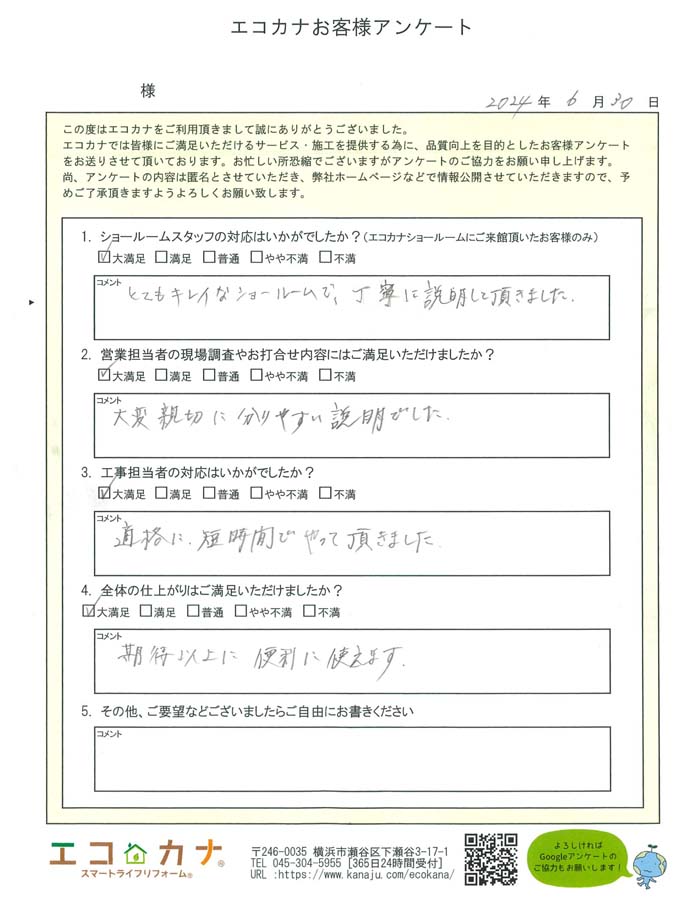 エコカナお客様アンケート
様
2024 年 6 月 30 日
この度はエコカナをご利用頂きまして誠にありがとうございました。
エコカナでは皆様にご満足いただけるサービス・施工を提供する為に、品質向上を目的としたお客様アンケート
をお送りさせて頂いております。お忙しい所恐縮でございますがアンケートのご協力をお願い申し上げます。
尚、アンケートの内容は匿名とさせていただき、弊社ホームページなどで情報公開させていただきますので、予
めご了承頂きますようよろしくお願い致します。
1. ショールームスタッフの対応はいかがでしたか？(エコカナショールームにご来館頂いたお客様のみ)
☑大満足 □満足 □普通 □やや不満 □不満
コメント
とてもキレイなショールームで、丁寧に説明して頂きました.
2. 営業担当者の現場調査やお打合せ内容にはご満足いただけましたか？
☑大満足 □満足 □普通 □やや不満 □不満
コメント
大変親切に分りやすい説明でした.
3. 工事担当者の対応はいかがでしたか？
☑大満足 □満足 □普通 □やや不満 □不満
コメント
適格に、短時間でやって頂きました.
4. 全体の仕上がりはご満足いただけましたか？
☑大満足 □満足 □普通 □やや不満 □不満
コメント
期待以上に便利に使えます.
5. その他、ご要望などございましたらご自由にお書きください
コメント
エコカナ®
スマートライフリフォーム®
〒246-0035 横浜市瀬谷区下瀬谷3-17-1
TEL 045-304-5955 [365日24時間受付]
URL :https://www.kanaju.com/ecokana/
よろしければ
Googleアンケートの
ご協力もお願いします！